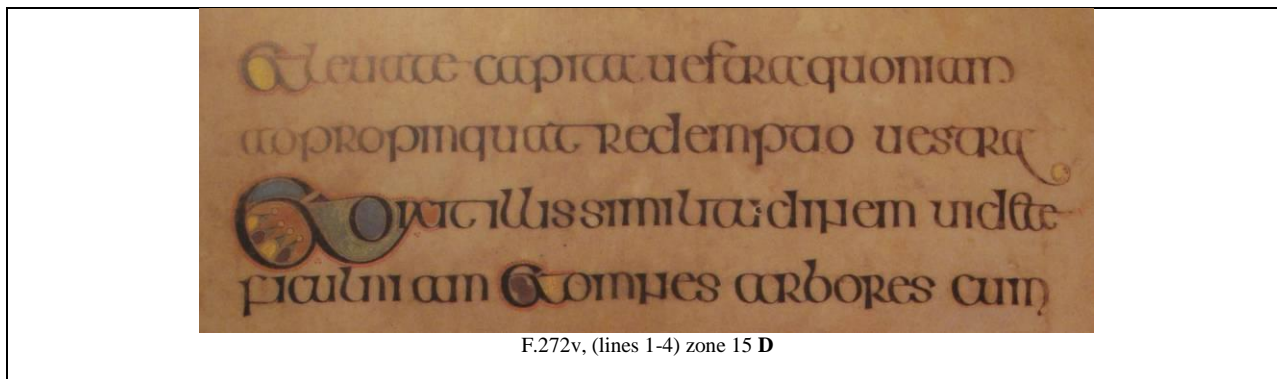 Et leuate capita uestra quoniam
adpropinquat redemptio uestra
Et dixit illis similitudinem uidete
ficulniam Et omnes arbores cum
F.272v, (lines 1-4) zone 15 D